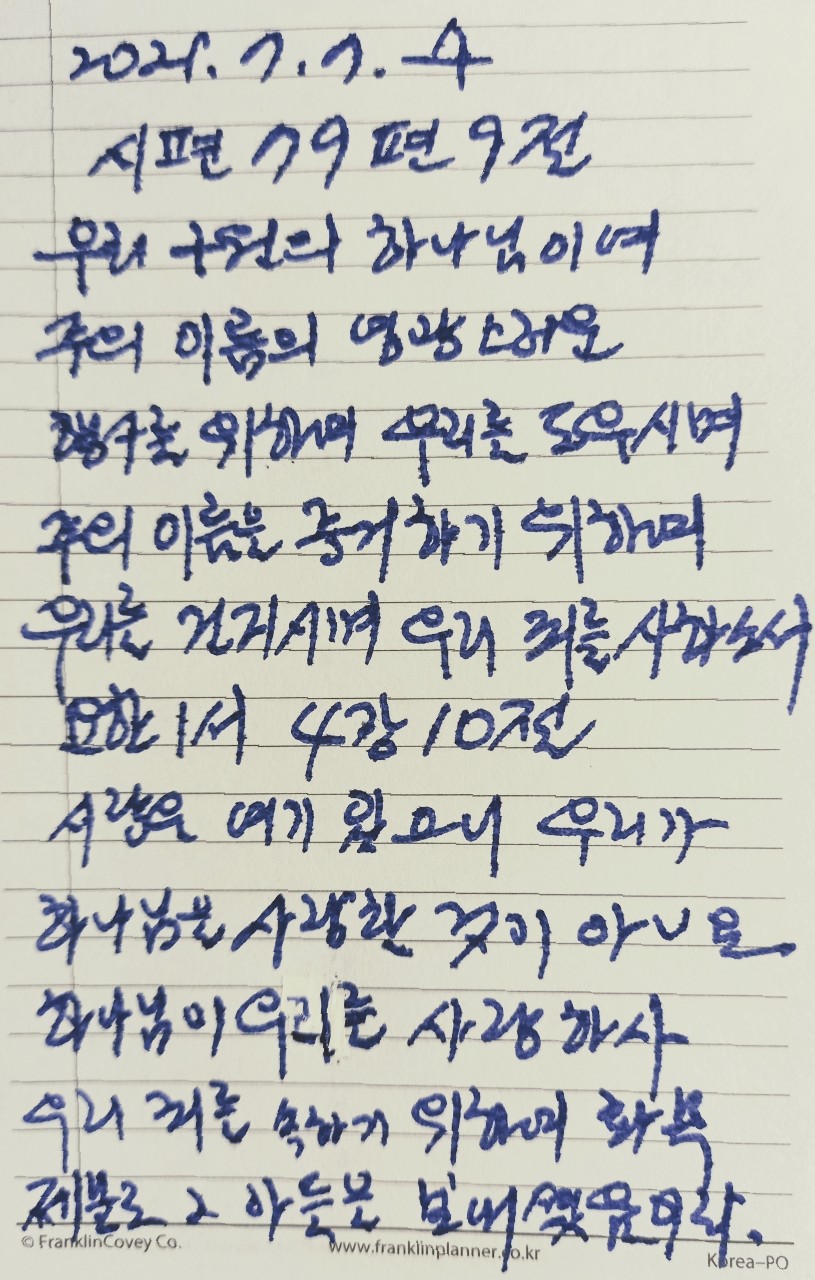 2021. 7. 7. 수
시편 79편 9절
우리 구원의 하나님이여
주의 이름의 영광스러운
행사를 위하여 우리를 도우시며
주의 이름을 증거하기 위하여
우리를 건지시며 우리 죄를 사하소서
요한1서 4장 10절
사랑은 여기 있으니 우리가
하나님을 사랑한 것이 아니요
하나님이 우리를 사랑하사
우리 죄를 속하기 위하여 화목
제물로 그 아들을 보내셨음이라.
© FranklinCovey Co. www.franklinplanner.co.kr Korea-PO